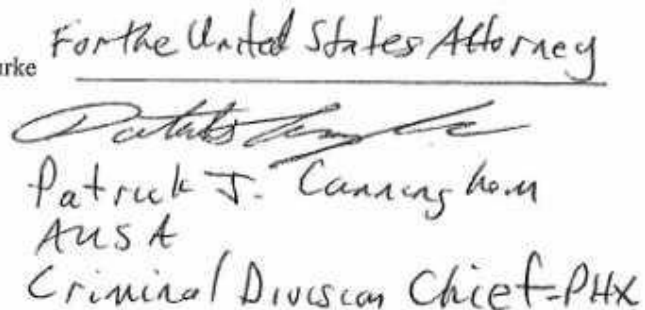 For the United States Attorney
urke
Patrick J. Cunningham
AUSA
Criminal Division Chief-PHX